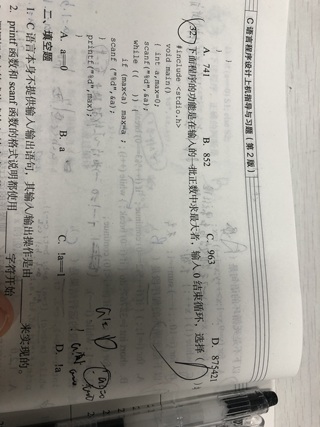 C语言程序设计上机指导与习题（第2版）
A. 741 B. 852 C. 963 D. 875421
32. 下面程序的功能是在输入的一批正数中求最大者，输入0结束循环，选择（ D ）。
#include <stdio.h>
void main()
{ int a,max=0;
scanf("%d",&a);
while (( )) {
if (max<a) max=a ;
scanf ("%d",&a);
}
printf("%d",max);
}
A. a==0 B. a C. !a==1 D. !a
二、填空题
1. C语言本身不提供输入/输出语句，其输入/输出操作是由 来实现的。
2. printf函数和scanf函数的格式说明都使用 字符开始